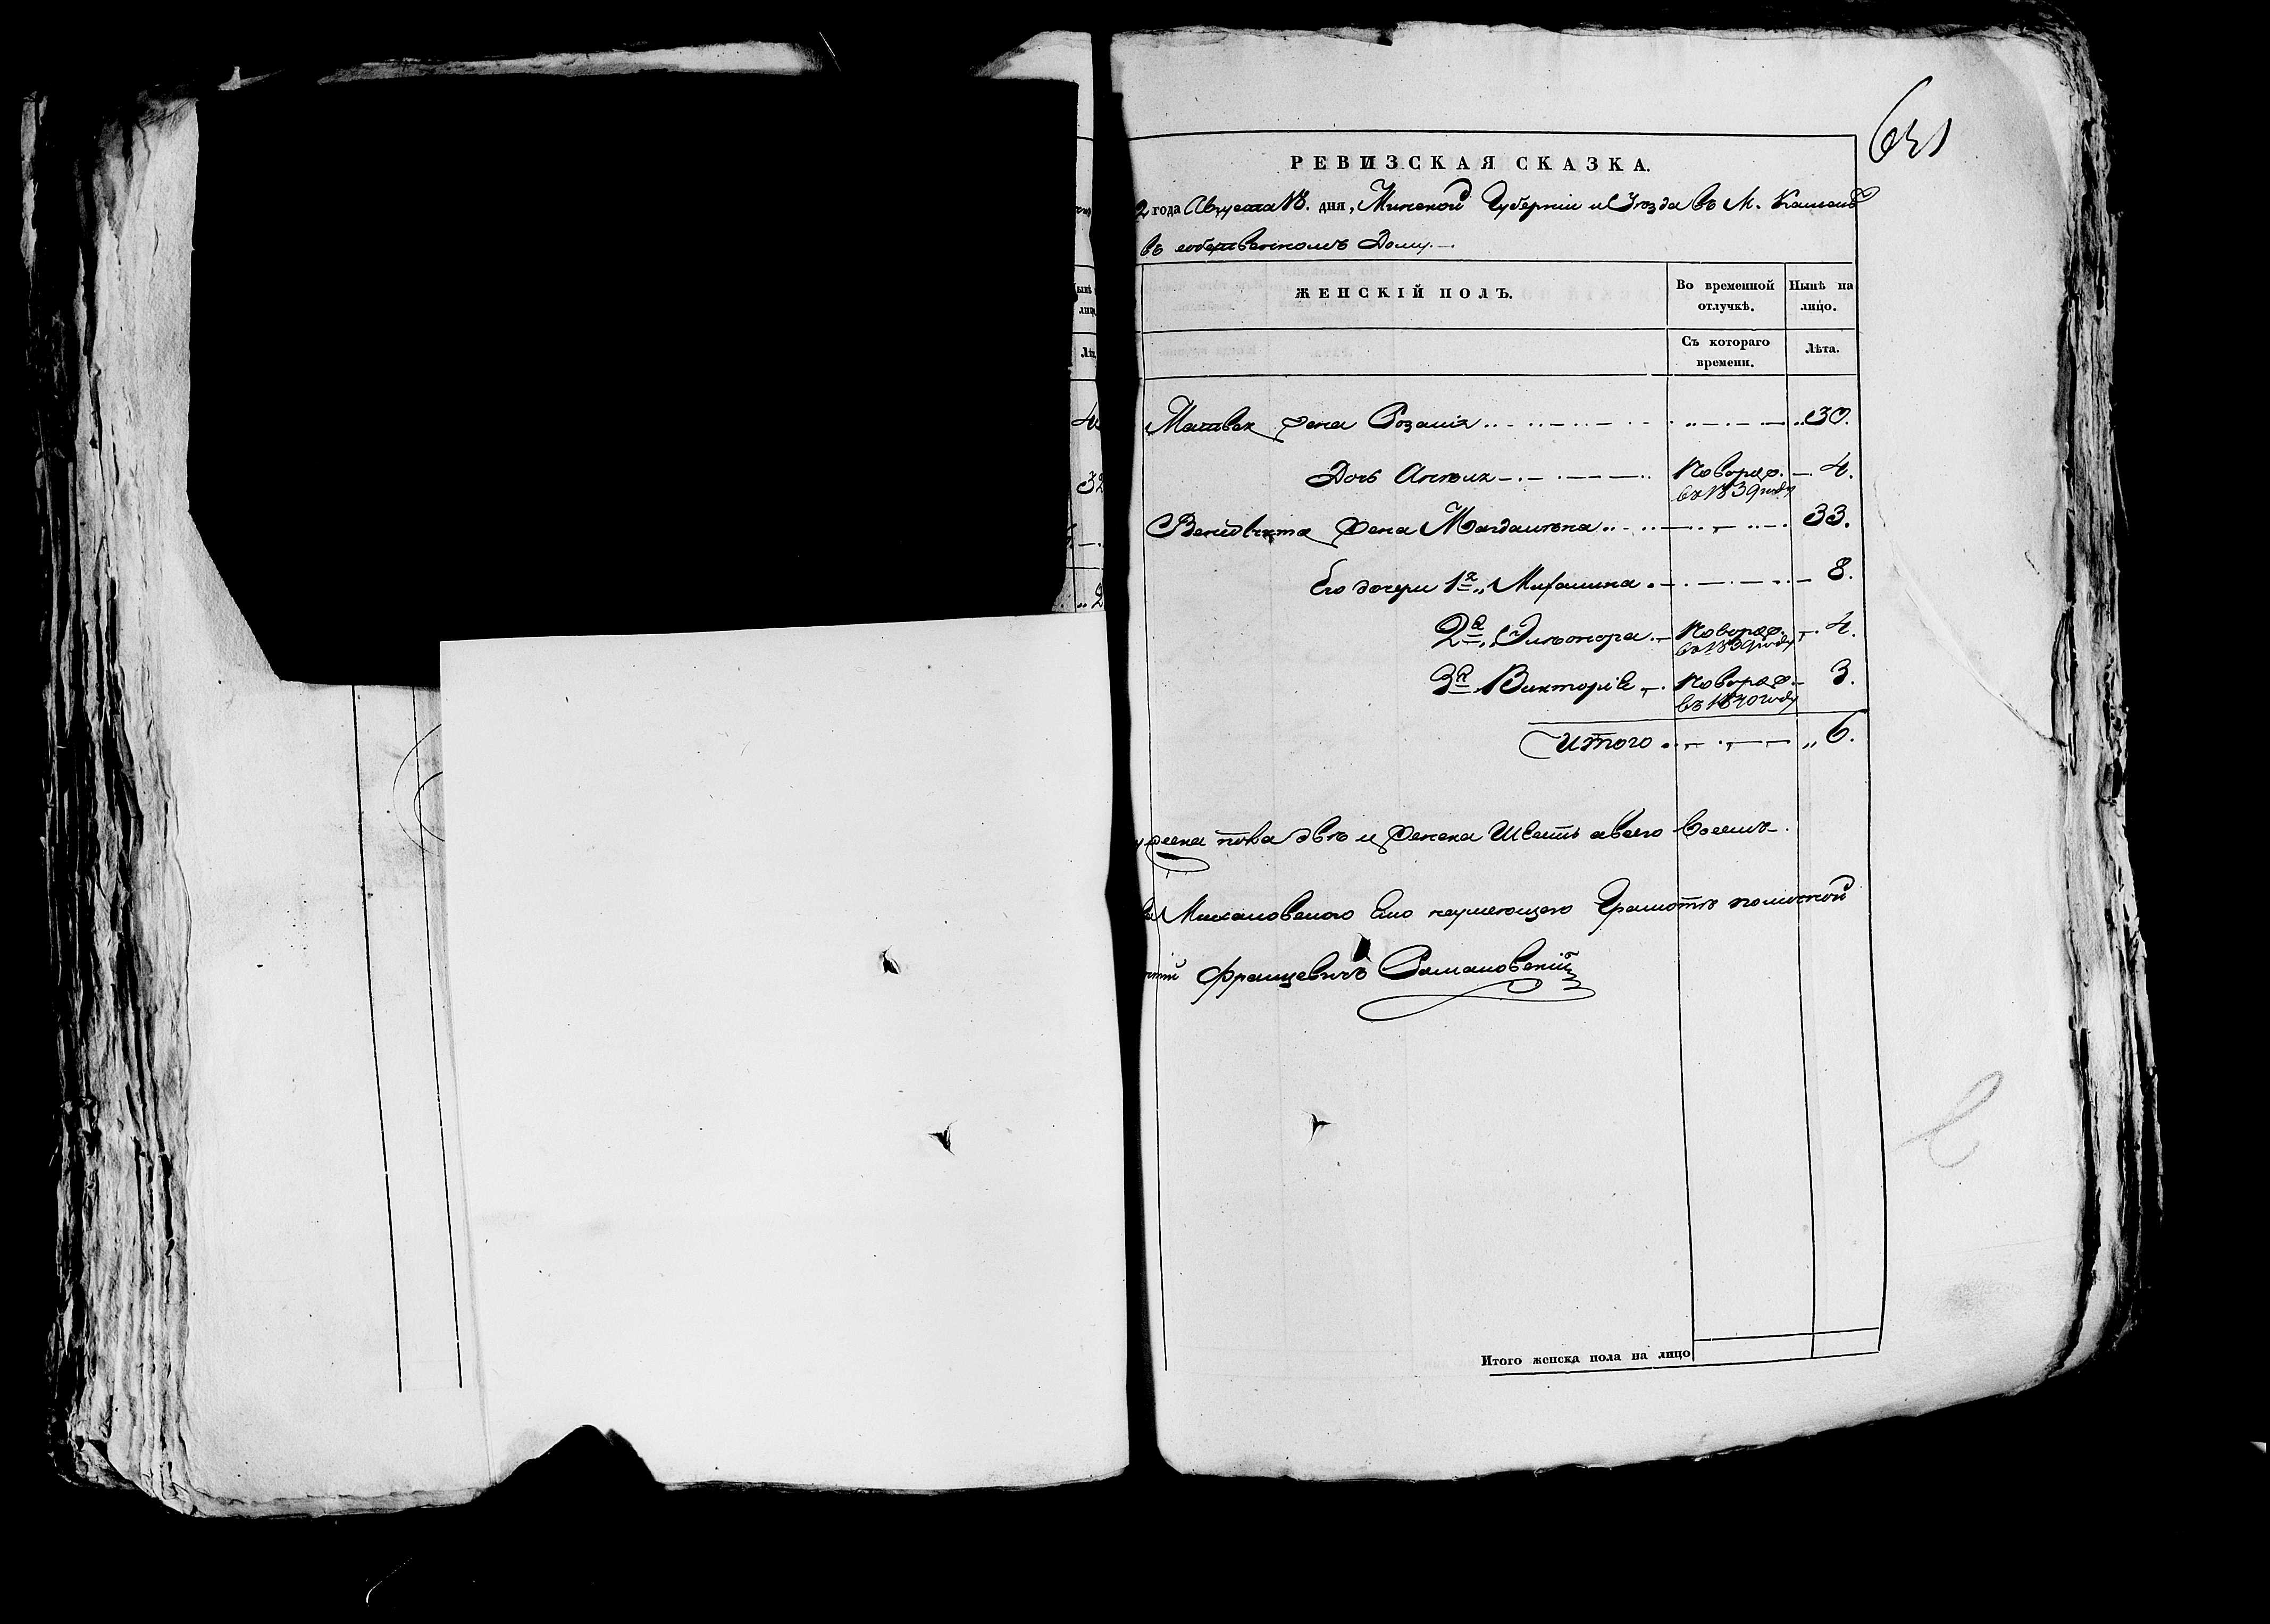 631
РЕВИЗСКАЯ СКАЗКА.
2 года Августа 18. дня, Минской Губерніи и Уѣзда въ М. Каменѣ
въ собственномъ Дому.
ЖЕНСКІЙ ПОЛЪ.
Во временной отлучкѣ.
Нынѣ на лицо.
Съ котораго времени.
Лѣта.
Матвея жена Розалія 30.
Дочь Анеля новорож. въ 1839 году 4.
Венедикта жена Магдалена 33.
Его дочери 1я Михалина 8.
2я Элеонора новорож. въ 1839 году 4.
3я Викторія новорож. въ 1840 году 3.
Итого 6.
пола двѣ и женска шесть а всего восемь
Михаловского Ево неумеющего Грамоте
Францевичъ Романовскій
Итого женска пола на лицо
32